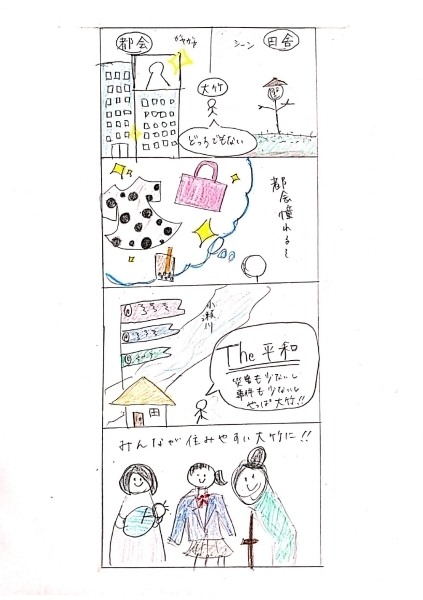 都会
ガヤガヤ
シーン
田舎
大竹
どっちでもない
都会憧れる〜
小瀬川
The平和
災害も少ないし
事件も少ないし
やっぱ大竹!!
みんなが住みやすい大竹に!!